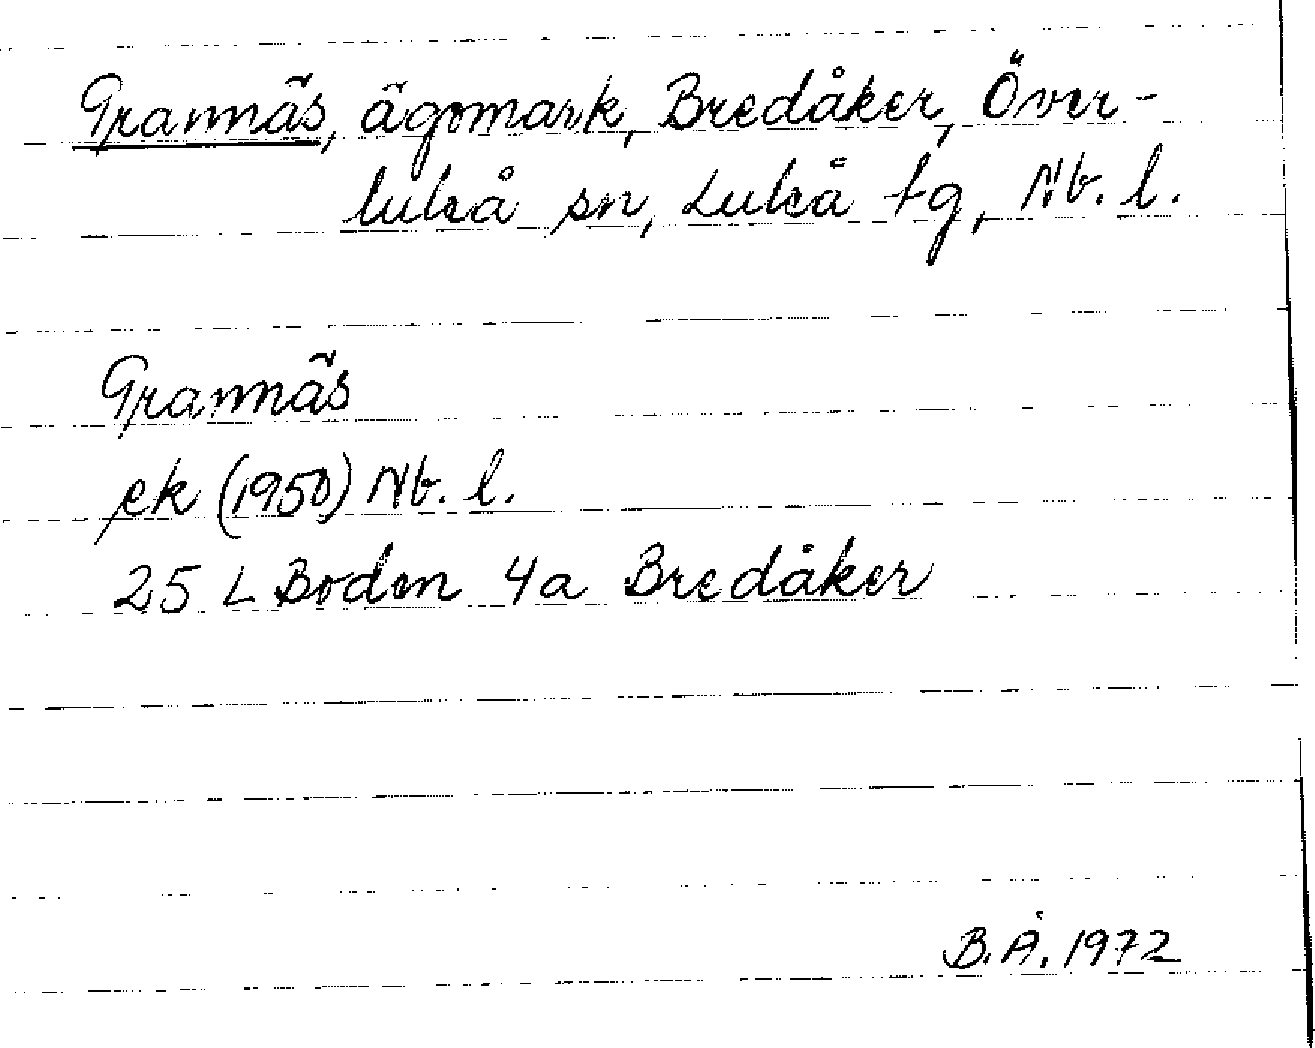 Grannäs, ägomark, Bredåker, Över-
luleå sn, Luleå tg, Nb. l.
Grannäs
ek (1950) Nb. l.
25 L Boden 4a Bredåker
B.Å. 1972